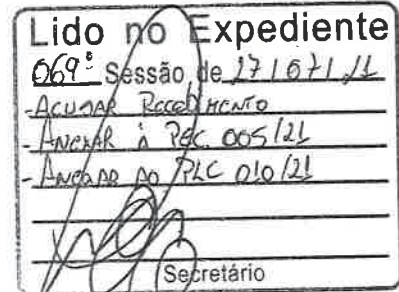 Lido no Expediente
069ª Sessão de 27/07/21
- ACUSAR RECEBIMENTO
- ANEXAR À PEC 005/21
- ANEXAR AO PLC 010/21
Secretário